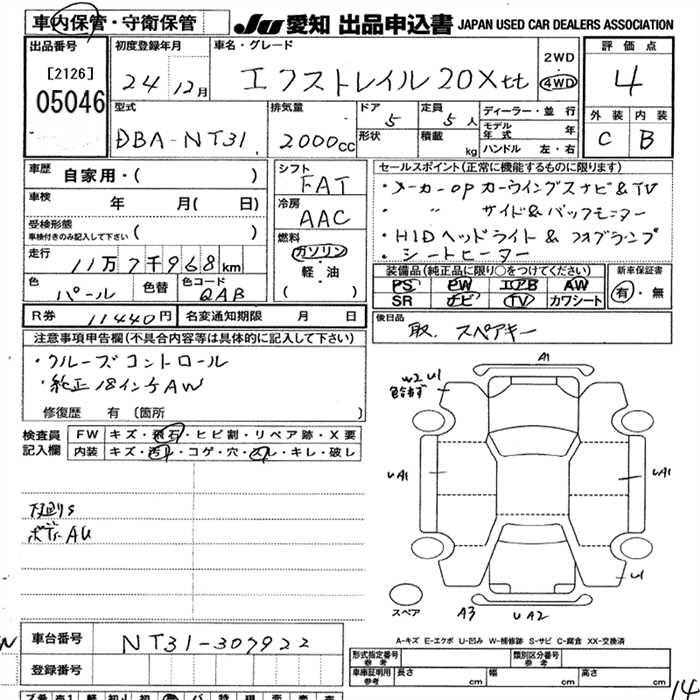 車内保管・守衛保管
JU 愛知 出品申込書 JAPAN USED CAR DEALERS ASSOCIATION
出品番号
[2126]
05046
初度登録年月
24年 12月
車名・グレード
エクストレイル 20X tt
2WD
4WD
評価点
4
型式
DBA-NT31
排気量
2000cc
ドア 5
形状
定員 5人
積載 kg
ディーラー・並行
モデル年式 年
ハンドル 左・右
外装 内装
C B
車歴
自家用・( )
車検 年 月( 日)
受検形態
車検付きのみ記入して下さい ( )
走行
11万7千968km
色 パール
色替
色コード QAB
シフト
FAT
冷房
AAC
燃料
ガソリン
軽・油
( )
セールスポイント(正常に機能するものに限ります)
・メーカーOP カーウイングスナビ&TV
・ 〃 サイド&バックモニター
・HIDヘッドライト&フォグランプ
・シートヒーター
装備品(純正品に限り○をつけてください)
PS PW エアB AW
SR ナビ TV カワシート
新車保証書
有・無
R券 11440円
名変通知期限 月 日
後日品
取. スペアキー
注意事項申告欄(不具合内容等は具体的に記入して下さい)
・クルーズコントロール
・純正18インチAW
修復歴 有 〔箇所 〕
検査員
記入欄
FW キズ・飛石・ヒビ割・リペア跡・X要
内装 キズ・汚れ・コゲ・穴・スレ・キレ・破レ
下廻りS
ボディAU
A1
W2 U1
色合せず
UA1
UA1
U1
スペア
A3
UA2
A-キズ E-エクボ U-凹み W-補修跡 S-サビ C-腐食 XX-交換済
車台番号 NT31-307922
登録番号
形式指定番号
参考
類別区分番号
参考
車庫証明用
参考
長さ cm 幅 cm 高さ cm
14